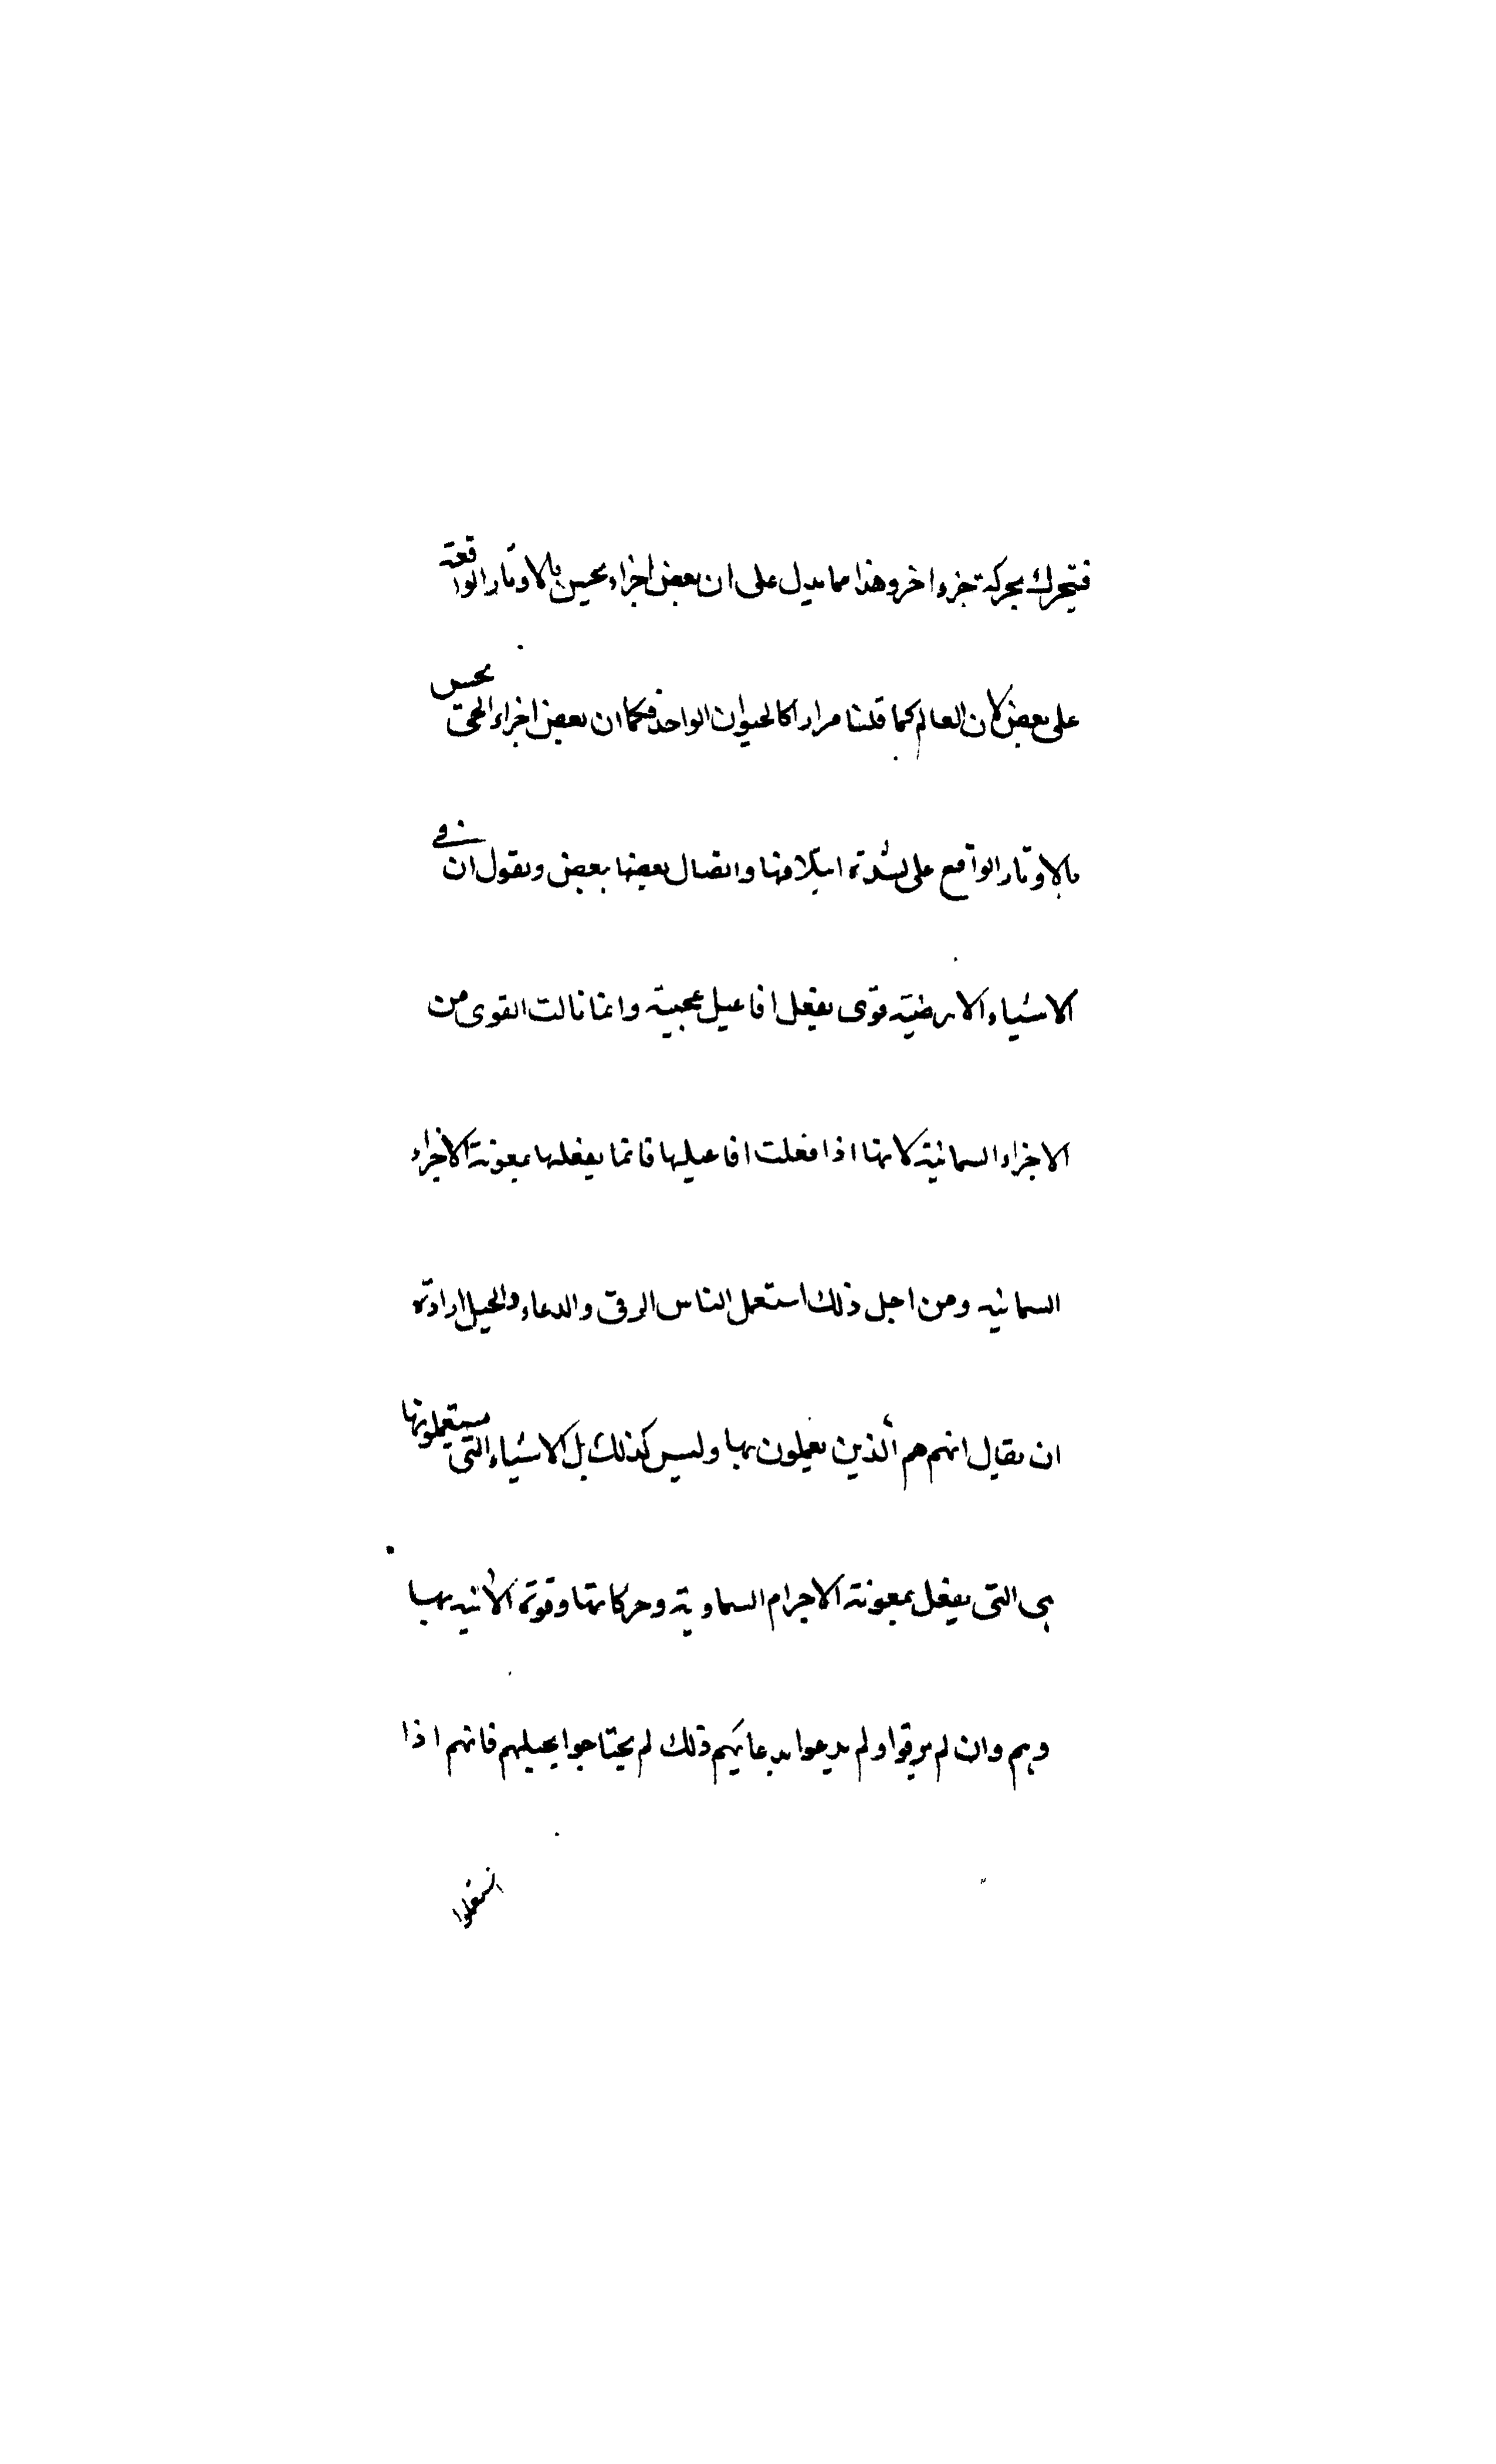 فتحرك بحركة جزء اخر وهذا مما يدل على ان بعض اجزاء يحس بالاوتار الواقعة
على بعض لان العالم كما قلنا مرارا كالحيوان الواحد فكما ان بعض اجزاء الحي يحس
بالاوتار الواقع على لشدة ايتلافها واتصال بعضها ببعض ونقول ان في
الاشياء الارضية قوى يفعل افاعيل عجيبة وانما نالت القوى من
الاجزاء السمائية لانها اذا فعلت افاعيلها فانما يفعلها بمعونة الاجزاء
السمائيه ومن اجل ذلك استعمل الناس الرقى والدعاء والحيل ارادة
ان يقال انهم هم الذين يعملون بها وليس كذلك بل الاشياء التي يستعملونها
هى التى يفعل بمعونة الاجرام السماوية وحركاتها وقوته الاتيه بها
وهم وان لم يرقوا ولم يدعوا بدعائهم ذلك لم يحتاجوا بحيلهم فانهم اذا
استعملوا